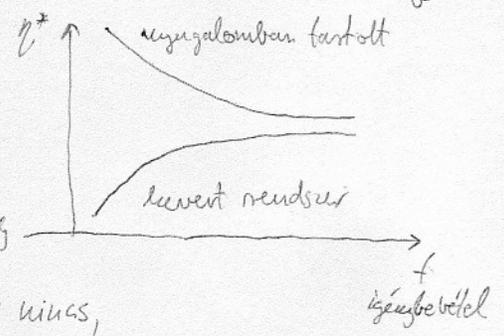 η* nyugalomban tartott
kevert rendszer
f
igénybevétel
nincs,